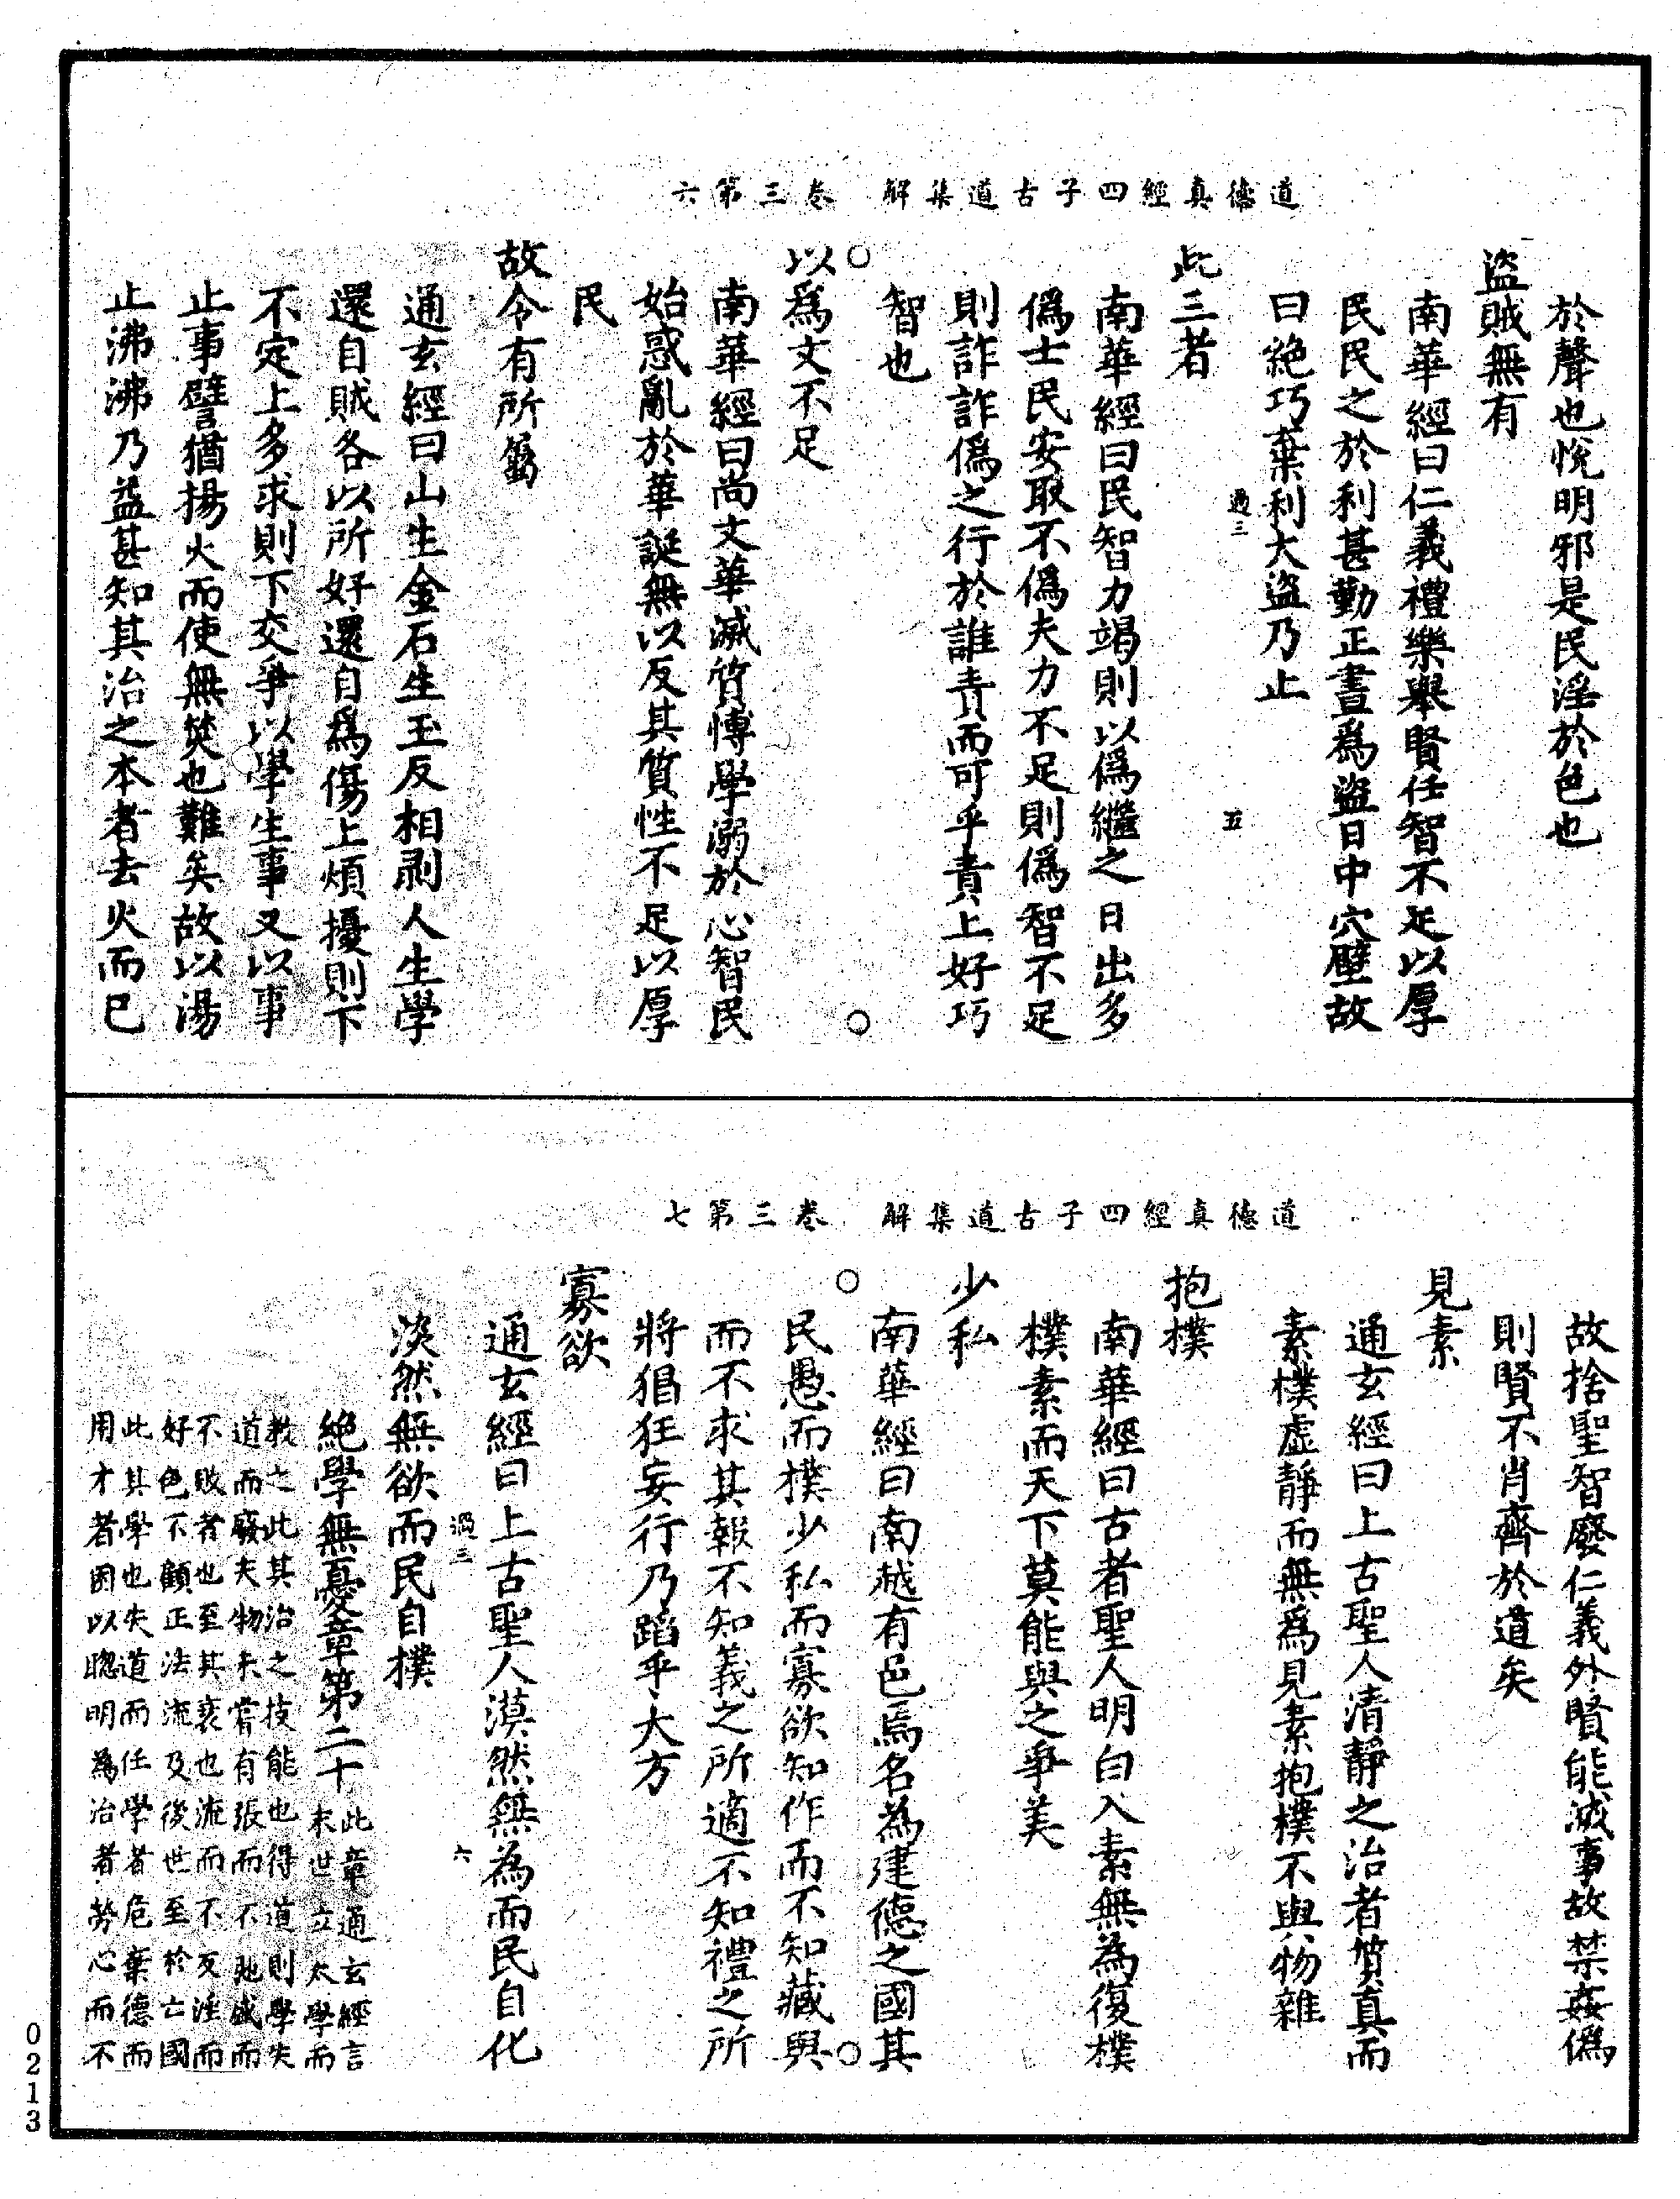 道德真經四子古道集解　卷三第六
於聲也悅明邪是民淫於色也
盜賊無有
南華經曰仁義禮樂舉賢任智不足以厚
民民之於利甚勤正晝為盜日中穴壁故
曰絕巧棄利大盜乃止
過三
五
此三者
南華經曰民智力竭則以僞繼之日出多
僞士民安取不僞夫力不足則僞智不足
則詐詐僞之行於誰責而可乎責上好巧
智也
以為文不足
南華經曰尚文華滅質博學溺於心智民
始惑亂於華誕無以反其質性不足以厚
民
故令有所屬
通玄經曰山生金石生玉反相剥人生學
還自賊各以所好還自為傷上煩擾則下
不定上多求則下交爭以學生事又以事
止事譬猶揚火而使無焚也難矣故以湯
止沸沸乃益甚知其治之本者去火而巳
道德真經四子古道集解　卷三第七
故捨聖智廢仁義外賢能滅事故禁姦僞
則賢不肖齊於道矣
見素
通玄經曰上古聖人清靜之治者質真而
素樸虛靜而無為見素抱樸不與物雜
抱樸
南華經曰古者聖人明白入素無為復樸
樸素而天下莫能與之爭美
少私
南華經曰南越有邑焉名為建德之國其
民愚而樸少私而寡欲知作而不知藏與
而不求其報不知義之所適不知禮之所
將猖狂妄行乃蹈乎大方
寡欲
通玄經曰上古聖人漠然無為而民自化
過三
六
淡然無欲而民自樸
絕學無憂章第二十
此章通玄經言
末世立太學而
教之此其治之技能也得道則學失
道而廢夫物未嘗有張而不弛盛而
不敗者也至其衰也流而不反淫而
好色不顧正法流及後世至於亡國
此其學也失道而任學者危棄德而
用才者困以聰明為治者勞心而不
0213